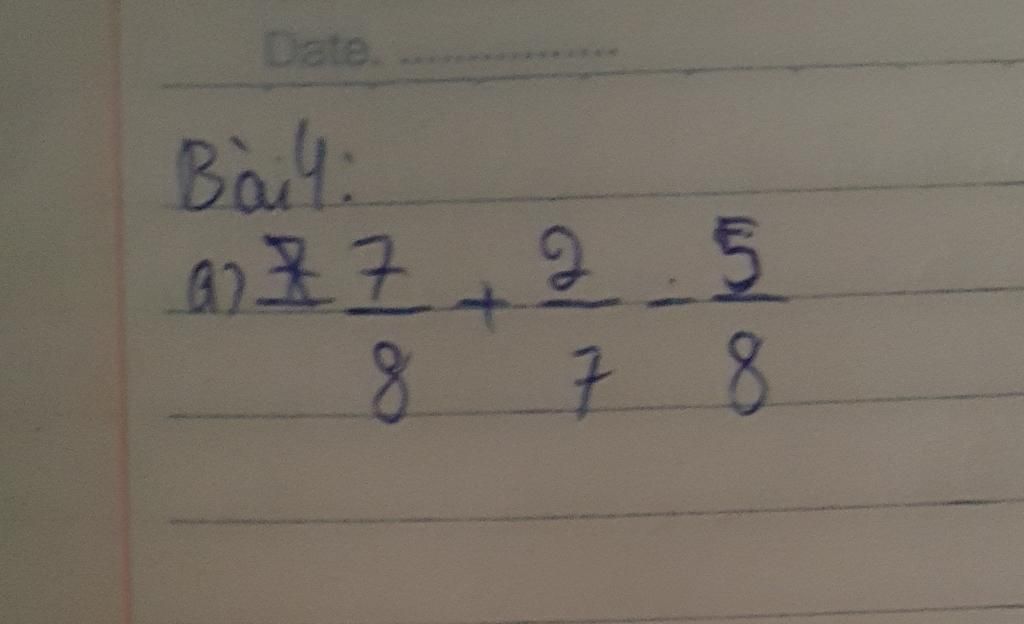 Date. ................
Bài 4:
a) 7/8 + 2/7 - 5/8